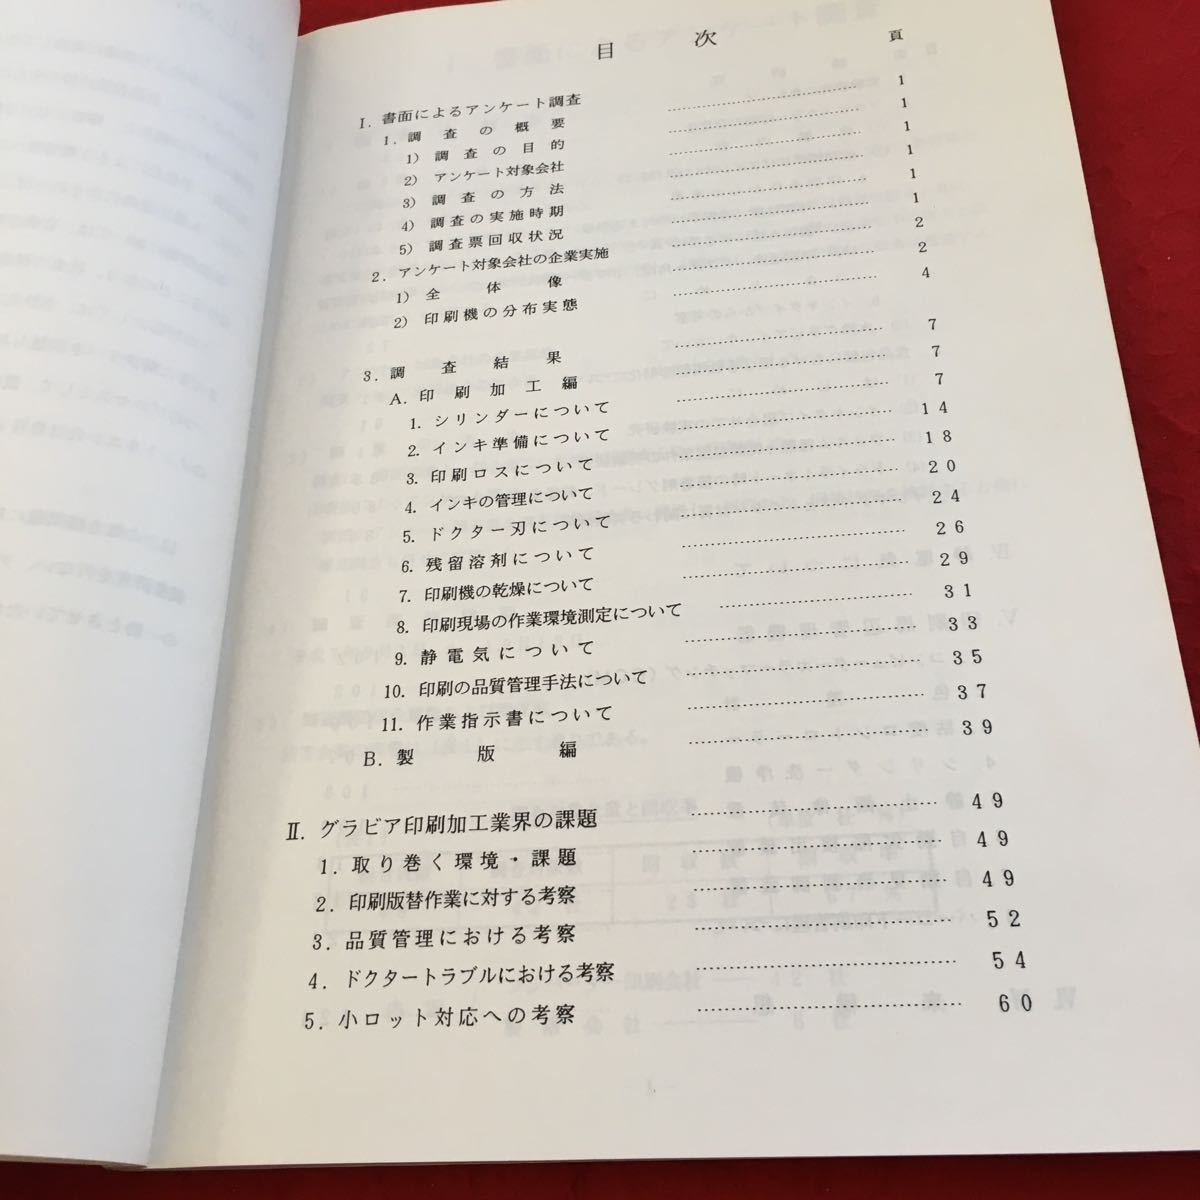 目 次 頁
Ⅰ. 書面によるアンケート調査
1. 調査の概要 …… 1
1) 調査の目的 …… 1
2) アンケート対象会社 …… 1
3) 調査の方法 …… 1
4) 調査の実施時期 …… 1
5) 調査票回収状況 …… 1
2. アンケート対象会社の企業実施 …… 2
1) 全体像 …… 2
2) 印刷機の分布実態 …… 4
3. 調査結果 …… 7
A. 印刷加工編 …… 7
1. シリンダーについて …… 7
2. インキ準備について …… 14
3. 印刷ロスについて …… 18
4. インキの管理について …… 20
5. ドクター刃について …… 24
6. 残留溶剤について …… 26
7. 印刷機の乾燥について …… 29
8. 印刷現場の作業環境測定について …… 31
9. 静電気について …… 33
10. 印刷の品質管理手法について …… 35
11. 作業指示書について …… 37
B. 製版編 …… 39
Ⅱ. グラビア印刷加工業界の課題 …… 49
1. 取り巻く環境・課題 …… 49
2. 印刷版替作業に対する考察 …… 49
3. 品質管理における考察 …… 52
4. ドクタートラブルにおける考察 …… 54
5. 小ロット対応への考察 …… 60